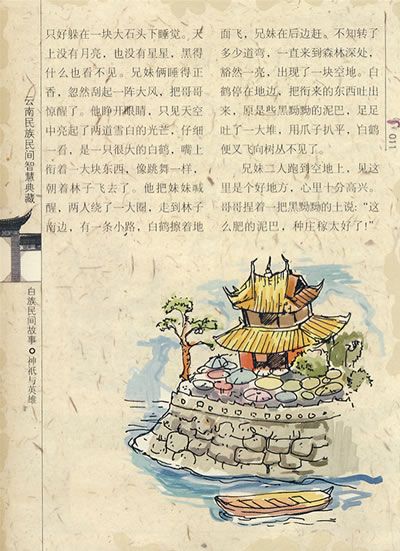 只好躲在一块大石头下睡觉。天
上没有月亮，也没有星星，黑得
什么也看不见。兄妹俩睡得正
香，忽然刮起一阵大风，把哥哥
惊醒了。他睁开眼睛，只见天空
中亮起了两道雪白的光芒，仔细
一看，是一只很大的白鹤，嘴上
衔着一大块东西，像跳舞一样，
朝着林子飞去了。他把妹妹喊
醒，两人绕了一大圈，走到林子
南边，有一条小路，白鹤擦着地
面飞，兄妹在后边赶。不知转了
多少道弯，一直来到森林深处，
豁然一亮，出现了一块空地。白
鹤停在地边，把衔来的东西吐出
来，原是些黑黝黝的泥巴，足足
吐了一大堆，用爪子扒平，白鹤
便又飞向树丛不见了。
兄妹二人跑到空地上，见这
里是个好地方，心里十分高兴。
哥哥捏着一把黑黝黝的土说：“这
么肥的泥巴，种庄稼太好了！”
云南民族民间智慧典藏
白族民间故事●神祇与英雄
011